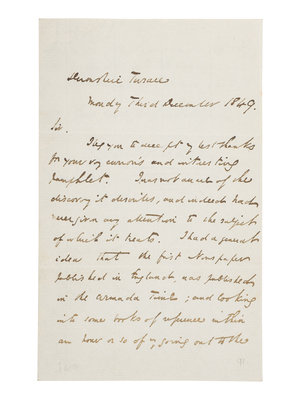 Devonshire Terrace
Monday Third December 1849.
Sir.
I beg you to accept my best thanks
for your very curious and interesting
pamphlet. I was not aware of the
discovery it describes, and indeed had
never given any attention to the subject
of which it treats. I had a general
idea that the first Newspaper
published in England, was published
in the Armada Time; and looking
into some books of reference within
an hour or so of my going out to the